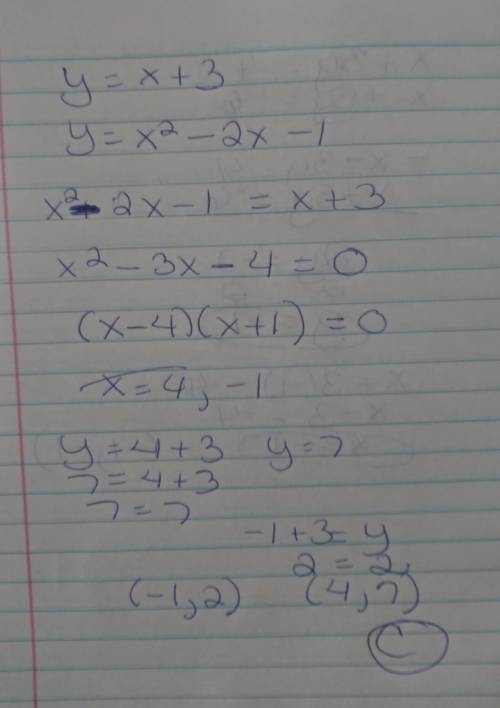 y = x + 3
y = x² - 2x - 1
x² - 2x - 1 = x + 3
x² - 3x - 4 = 0
(x - 4)(x + 1) = 0
x = 4, -1
y = 4 + 3 y = 7
7 = 4 + 3
7 = 7
-1 + 3 = y
2 = 2
(-1, 2) (4, 7)
C